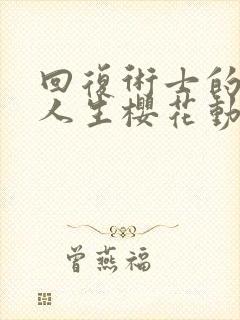 回復術士的
人生櫻花動
曾燕福